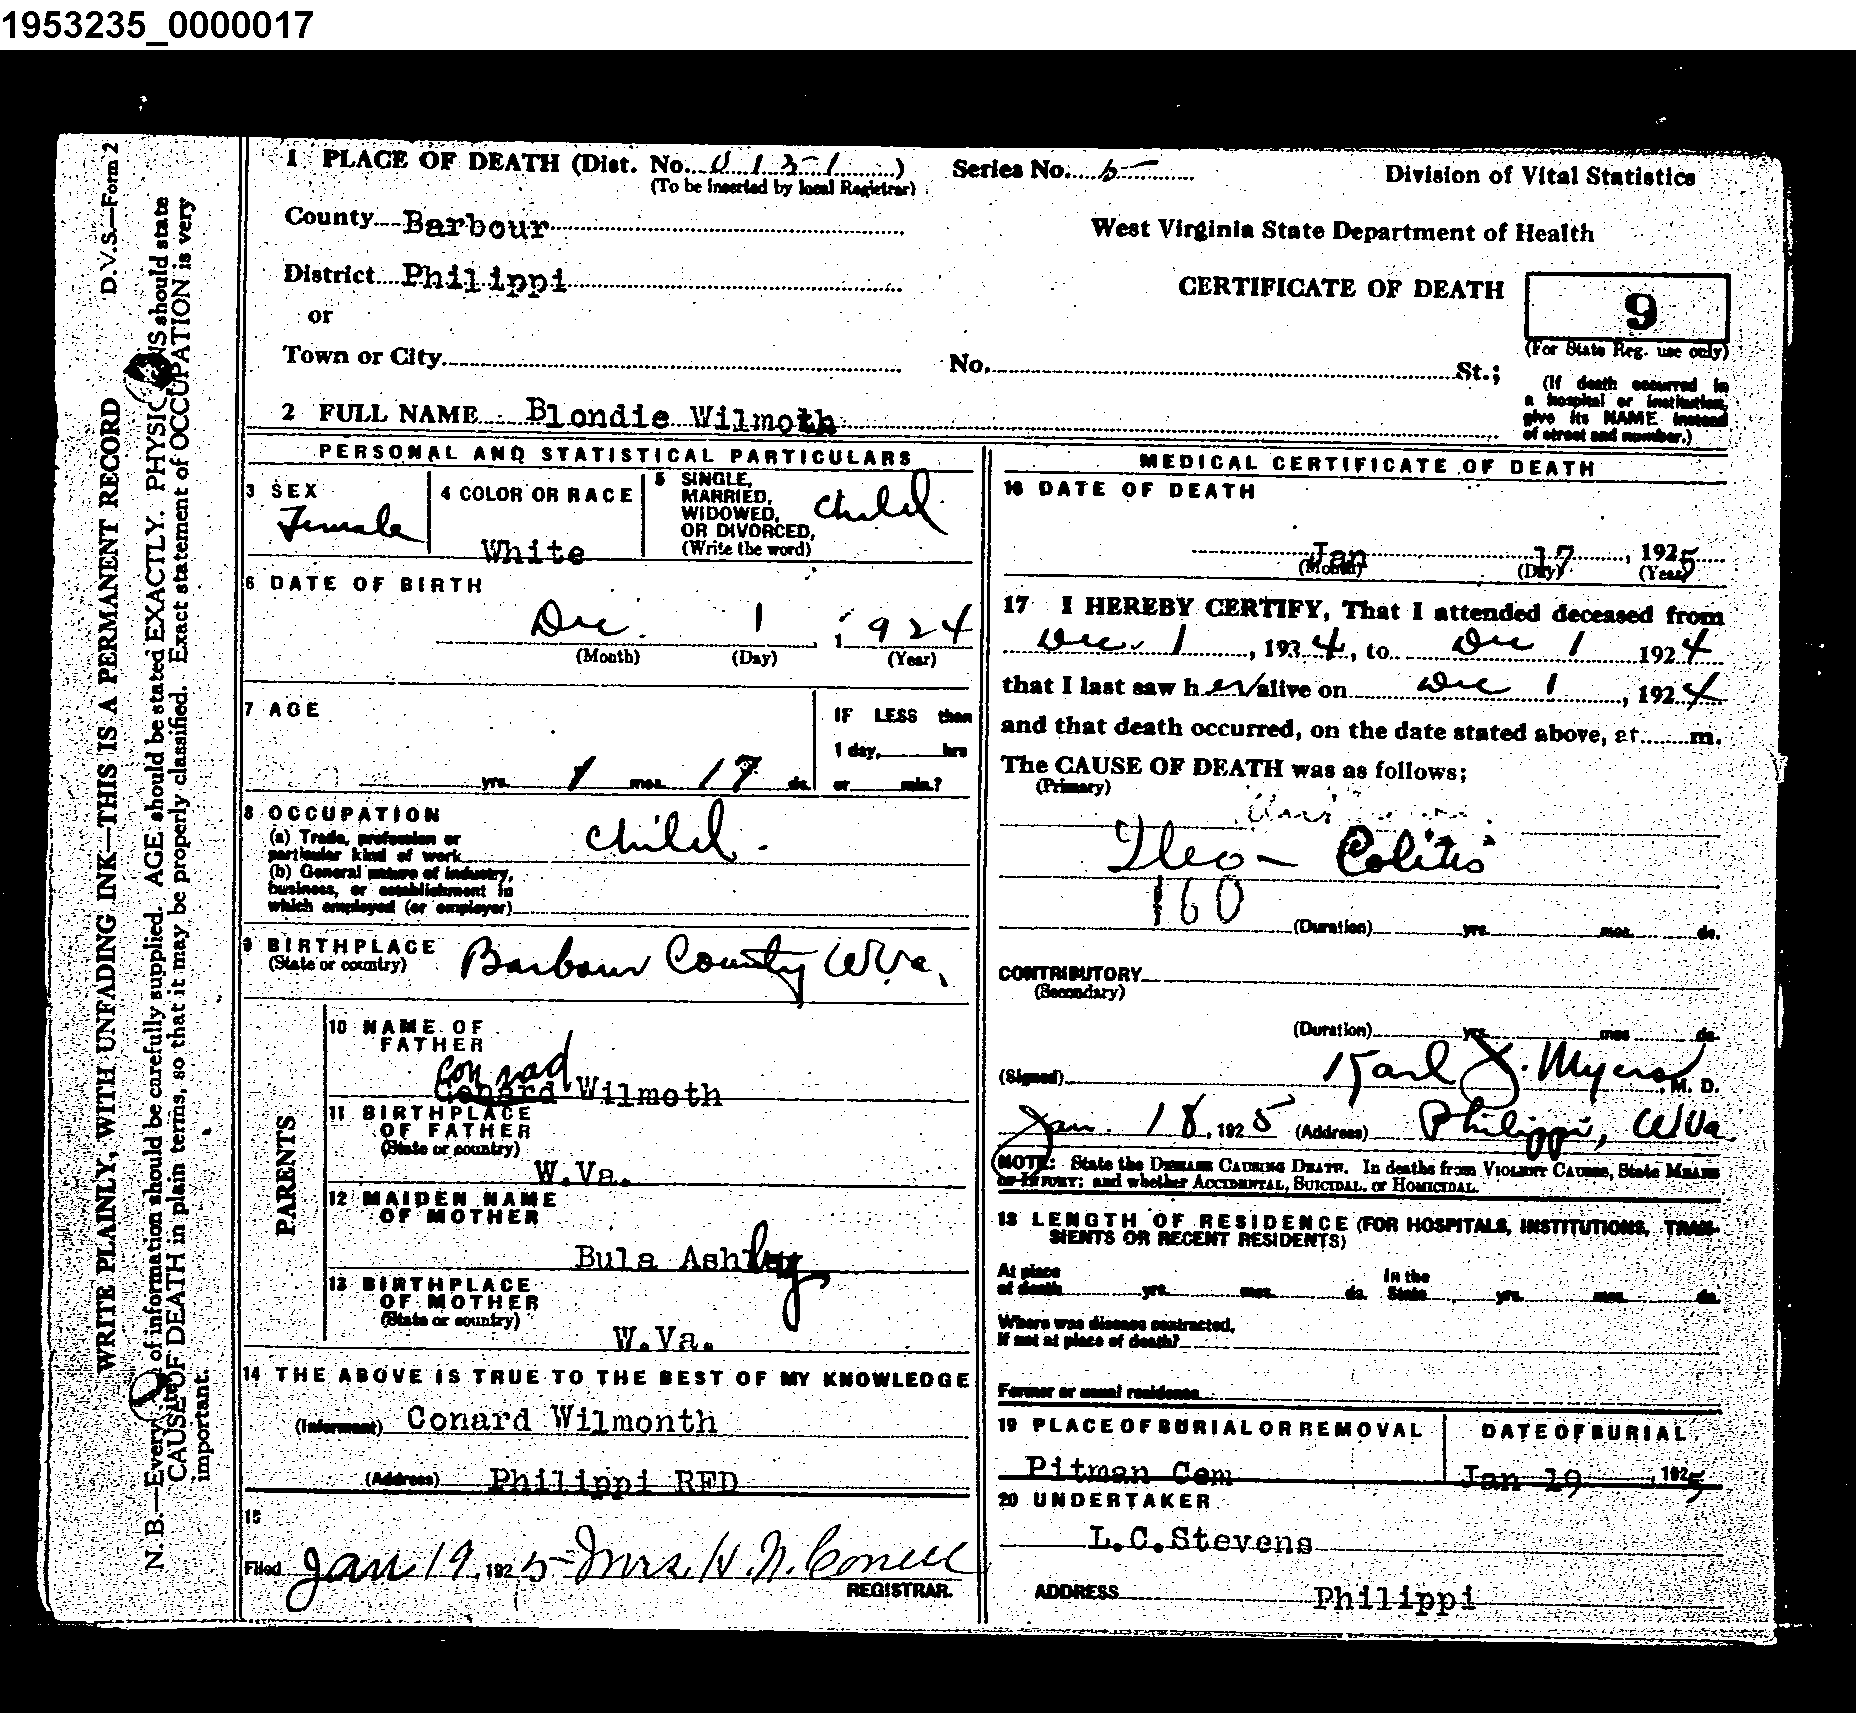 1953235_0000017
D.V.S.—Form 2
WRITE PLAINLY, WITH UNFADING INK—THIS IS A PERMANENT RECORD
N.B.—Every of information should be carefully supplied. AGE should be stated EXACTLY. PHYSIC NS should state
CAUSE OF DEATH in plain terms, so that it may be properly classified. Exact statement of OCCUPATION is very
important.
1 PLACE OF DEATH (Dist. No. 0151) Series No. 5 Division of Vital Statistics
(To be inserted by local Registrar)
County Barbour West Virginia State Department of Health
District Philippi CERTIFICATE OF DEATH 9
or
(For State Reg. use only)
Town or City No. St.;
(If death occurred in
a hospital or institution,
give its NAME instead
of street and number.)
2 FULL NAME Blondie Wilmoth
PERSONAL AND STATISTICAL PARTICULARS
3 SEX
Female
4 COLOR OR RACE
White
5 SINGLE,
MARRIED,
WIDOWED,
OR DIVORCED,
(Write the word)
Child
6 DATE OF BIRTH
Dec. 1, 1924
(Month) (Day) (Year)
7 AGE
yrs. 1 mos. 17 ds.
IF LESS than
1 day, hrs
or min.?
8 OCCUPATION
(a) Trade, profession or
particular kind of work
child.
(b) General nature of industry,
business, or establishment in
which employed (or employer)
9 BIRTHPLACE
(State or country)
Barbour County W.Va.
PARENTS
10 NAME OF
FATHER
Conrad
Conard Wilmoth
11 BIRTHPLACE
OF FATHER
(State or country)
W.Va.
12 MAIDEN NAME
OF MOTHER
Bula Ashley
13 BIRTHPLACE
OF MOTHER
(State or country)
W.Va.
14 THE ABOVE IS TRUE TO THE BEST OF MY KNOWLEDGE
(Informant) Conard Wilmonth
(Address) Philippi RFD
15
Filed Jan 19, 1925 Mrs. H. N.
REGISTRAR.
MEDICAL CERTIFICATE OF DEATH
16 DATE OF DEATH
Jan 17, 1925
(Month) (Day) (Year)
17 I HEREBY CERTIFY, That I attended deceased from
Dec. 1, 1924, to Dec 1 1924
that I last saw her alive on Dec 1, 1924
and that death occurred, on the date stated above, at m.
The CAUSE OF DEATH was as follows;
(Primary)
Ileo-Colitis
160
(Duration) yrs. mos. ds.
CONTRIBUTORY
(Secondary)
(Duration) yrs. mos. ds.
(Signed) Karl J. Myers M. D.
Jan. 18, 1925 (Address) Philippi, W.Va.
NOTE: State the Disease Causing Death. In deaths from Violent Causes, State Means
of Injury; and whether Accidental, Suicidal, or Homicidal.
18 LENGTH OF RESIDENCE (FOR HOSPITALS, INSTITUTIONS, TRAN-
SIENTS OR RECENT RESIDENTS)
At place
of death yrs. mos. ds.
In the
State yrs. mos. ds.
Where was disease contracted,
if not at place of death?
Former or usual residence
19 PLACE OF BURIAL OR REMOVAL
Pitman Cem
DATE OF BURIAL
Jan 19, 1925
20 UNDERTAKER
L.C.Stevens
ADDRESS Philippi